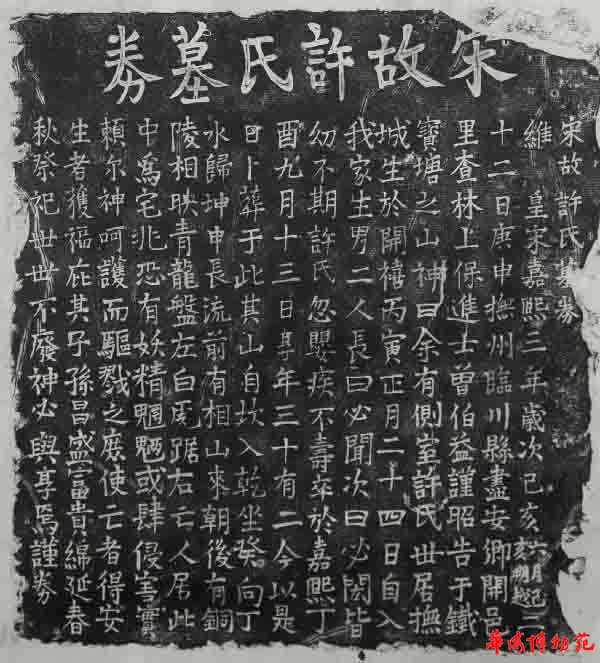 宋故許氏墓券
宋故許氏墓券
維 皇宋嘉熙三年歲次己亥六月己亥朔越二
十二日庚申撫州臨川縣盡安鄉開邑
里查林上保進士曾伯益謹昭告于鐵
寶塘之山神曰余有側室許氏世居撫
城生於開禧丙寅正月二十四日自入
我家生男二人長曰必聞次曰必閎皆
幼不期許氏忽嬰疾不壽卒於嘉熙丁
酉九月十三日享年三十有二今以是
日卜葬于此其山自坎入乾坐癸向丁
水歸坤申長流前有相山來朝後有銅
陵相映青龍盤左白虎踞右亡人居此
中為宅兆恐有妖精魍魎或肆侵害實
賴尔神呵護而驅戮之庶使亡者得安
生者獲福庇其子孫昌盛富貴綿延春
秋祭祀世世不廢神必與享焉謹券
華夏博物苑